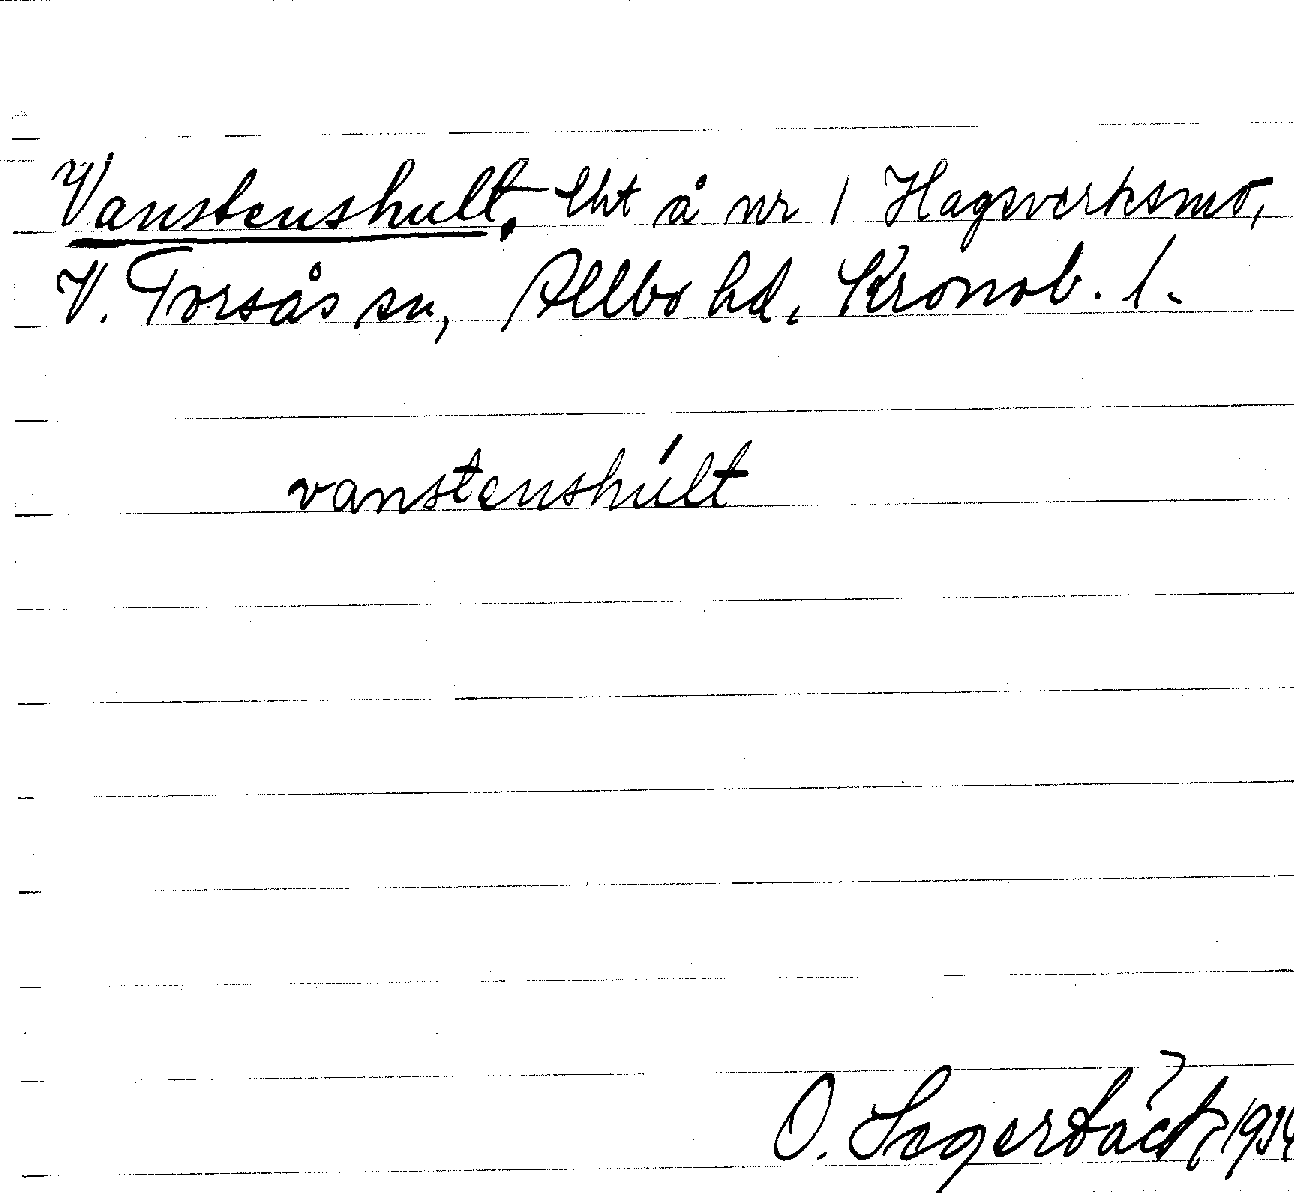 Vanstenshult, lht å nr 1 Hagsverksmo,
V. Torsås sn, Allbo hd, Kronob. l.
vanstenshúlt
O. Sagerbäck, 1934